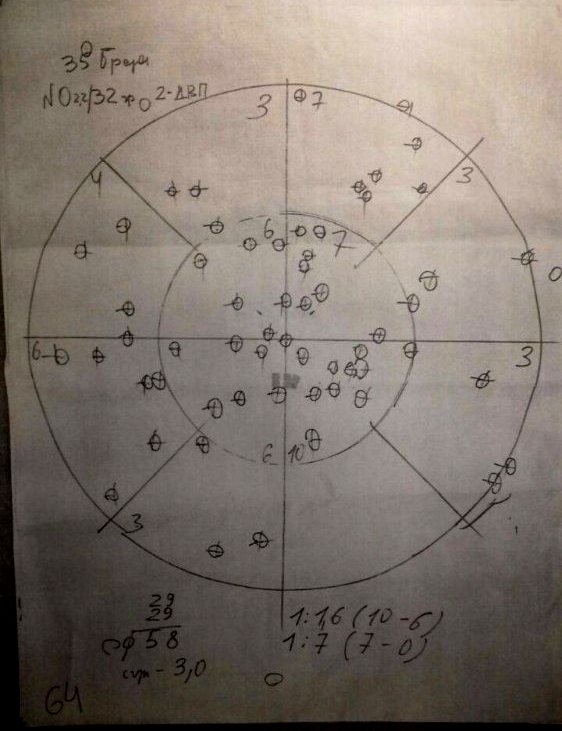 35
3
7
4
3
6
7
0
6
3
6
10
3
29
29
58
1:1,6 (10-6)
1:7 (7-0)
3,0
64